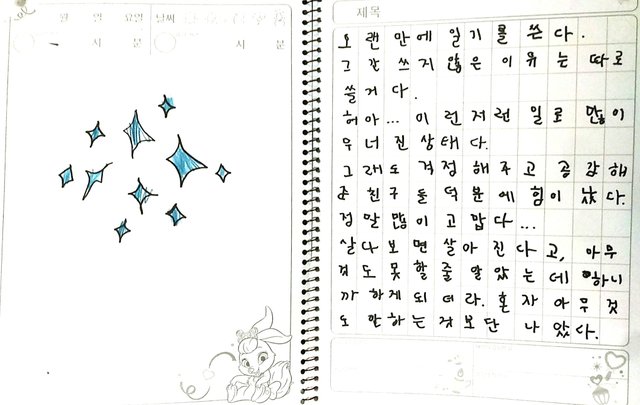 월 일 요일 날씨
시 분 시 분
제목
오랜만에 일기를 쓴다.
그간 쓰지 않은 이유는 따로
쓸거다.
허아... 이런저런 일로 많이
무너진 상태다.
그래도 걱정해주고 공감해
준 친구들 덕분에 힘이 났다.
정말 많이 고맙다...
살다보면 살아진다고, 아무
것도 못할줄 알았는데 하니
까 하게 되더라. 혼자 아무것
도 안하는것보단 나았다.